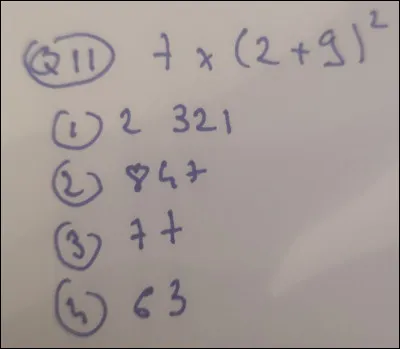 Q11 7 x (2+9)²
1 2 321
2 847
3 77
4 63